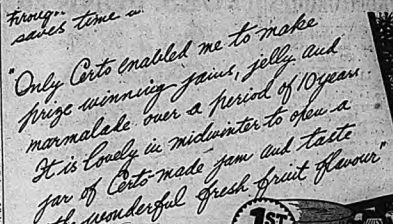 through
saves time
"Only Certo enabled me to make
prize winning jams, jelly and
marmalade over a period of 10 years.
It is lovely in midwinter to open a
jar of Certo-made jam and taste
wonderful fresh fruit flavour"
1ST